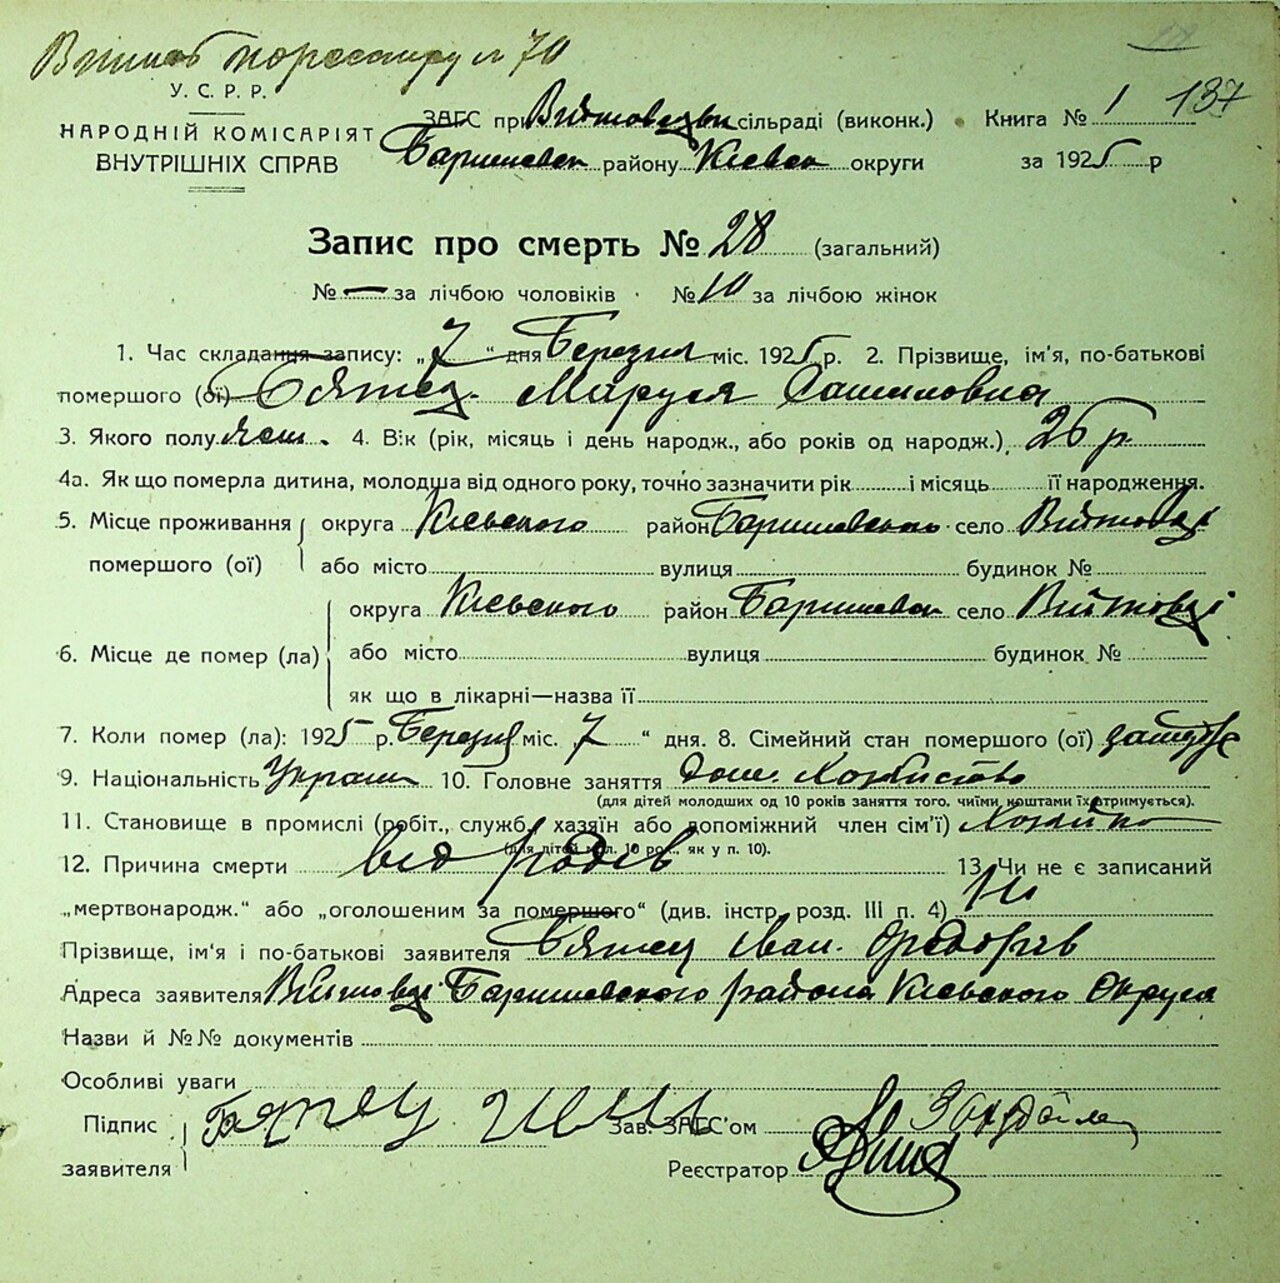 У. С. Р. Р.
НАРОДНІЙ КОМІСАРІЯТ
ВНУТРІШНІХ СПРАВ
ЗАГС при сільраді (виконк.) Книга № 1 137
Баришевск району Київск округи за 1925 р
Запис про смерть № 28 (загальний)
№ — за лічбою чоловіків № 10 за лічбою жінок
1. Час складання запису: „7“ дня Березня міс. 1925 р. 2. Прізвище, ім'я, по-батькові
помершого (ої) Маруся
3. Якого полу жен. 4. Вік (рік, місяць і день народж., або років од народж.) 26 р
4а. Як що померла дитина, молодша від одного року, точно зазначити рік і місяць її народження.
5. Місце проживання округа Київського район Баришевського село Війтовці
помершого (ої) або місто вулиця будинок №
округа Київського район Баришевск село Війтовці
6. Місце де помер (ла) або місто вулиця будинок №
як що в лікарні—назва її
7. Коли помер (ла): 1925 р. Березня міс. 7“ дня. 8. Сімейний стан помершого (ої)
9. Національність Украин 10. Головне заняття
(для дітей молодших од 10 років заняття того, чиїми коштами їх утримується).
11. Становище в промислі (робіт., служб., хазяїн або допоміжний член сім'ї)
(для дітей мол. 10 рок., як у п. 10).
12. Причина смерти від родів 13. Чи не є записаний
„мертвонародж.“ або „оголошеним за помершого“ (див. інстр. розд. III п. 4) Ні
Прізвище, ім'я і по-батькові заявителя Іван
Адреса заявителя Війтовці Баришевского района Київського Округа
Назви й №№ документів
Особливі уваги
Підпис
заявителя
Зав. ЗАГС'ом
Реєстратор